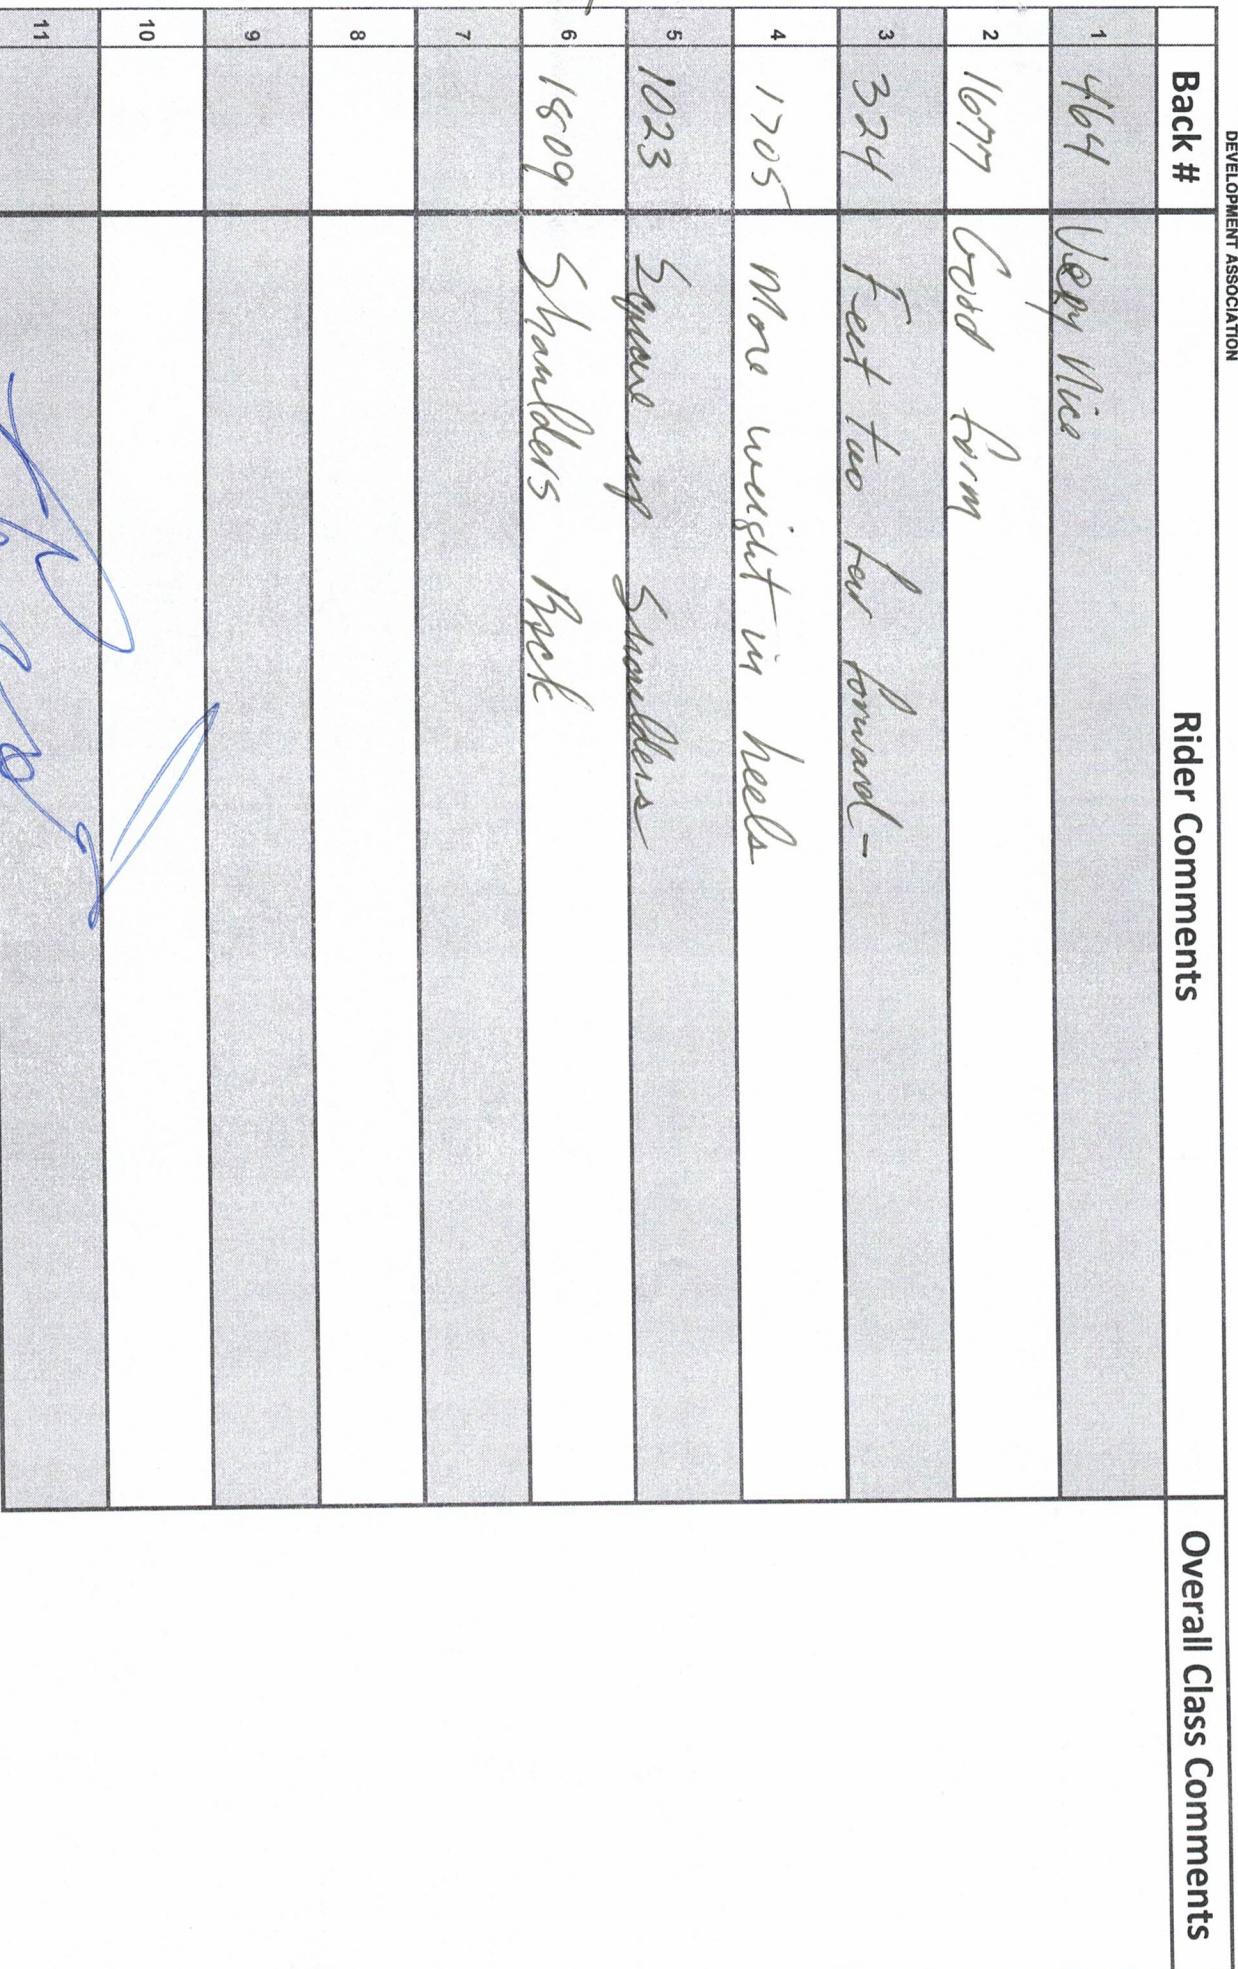 DEVELOPMENT ASSOCIATION
Back # Rider Comments Overall Class Comments
1 464 Very Nice
2 1677 Good form
3 324 Feet two far forward-
4 1705 More weight in heels
5 1023 Square up Shoulders
6 1809 Shoulders Back
7
8
9
10
11